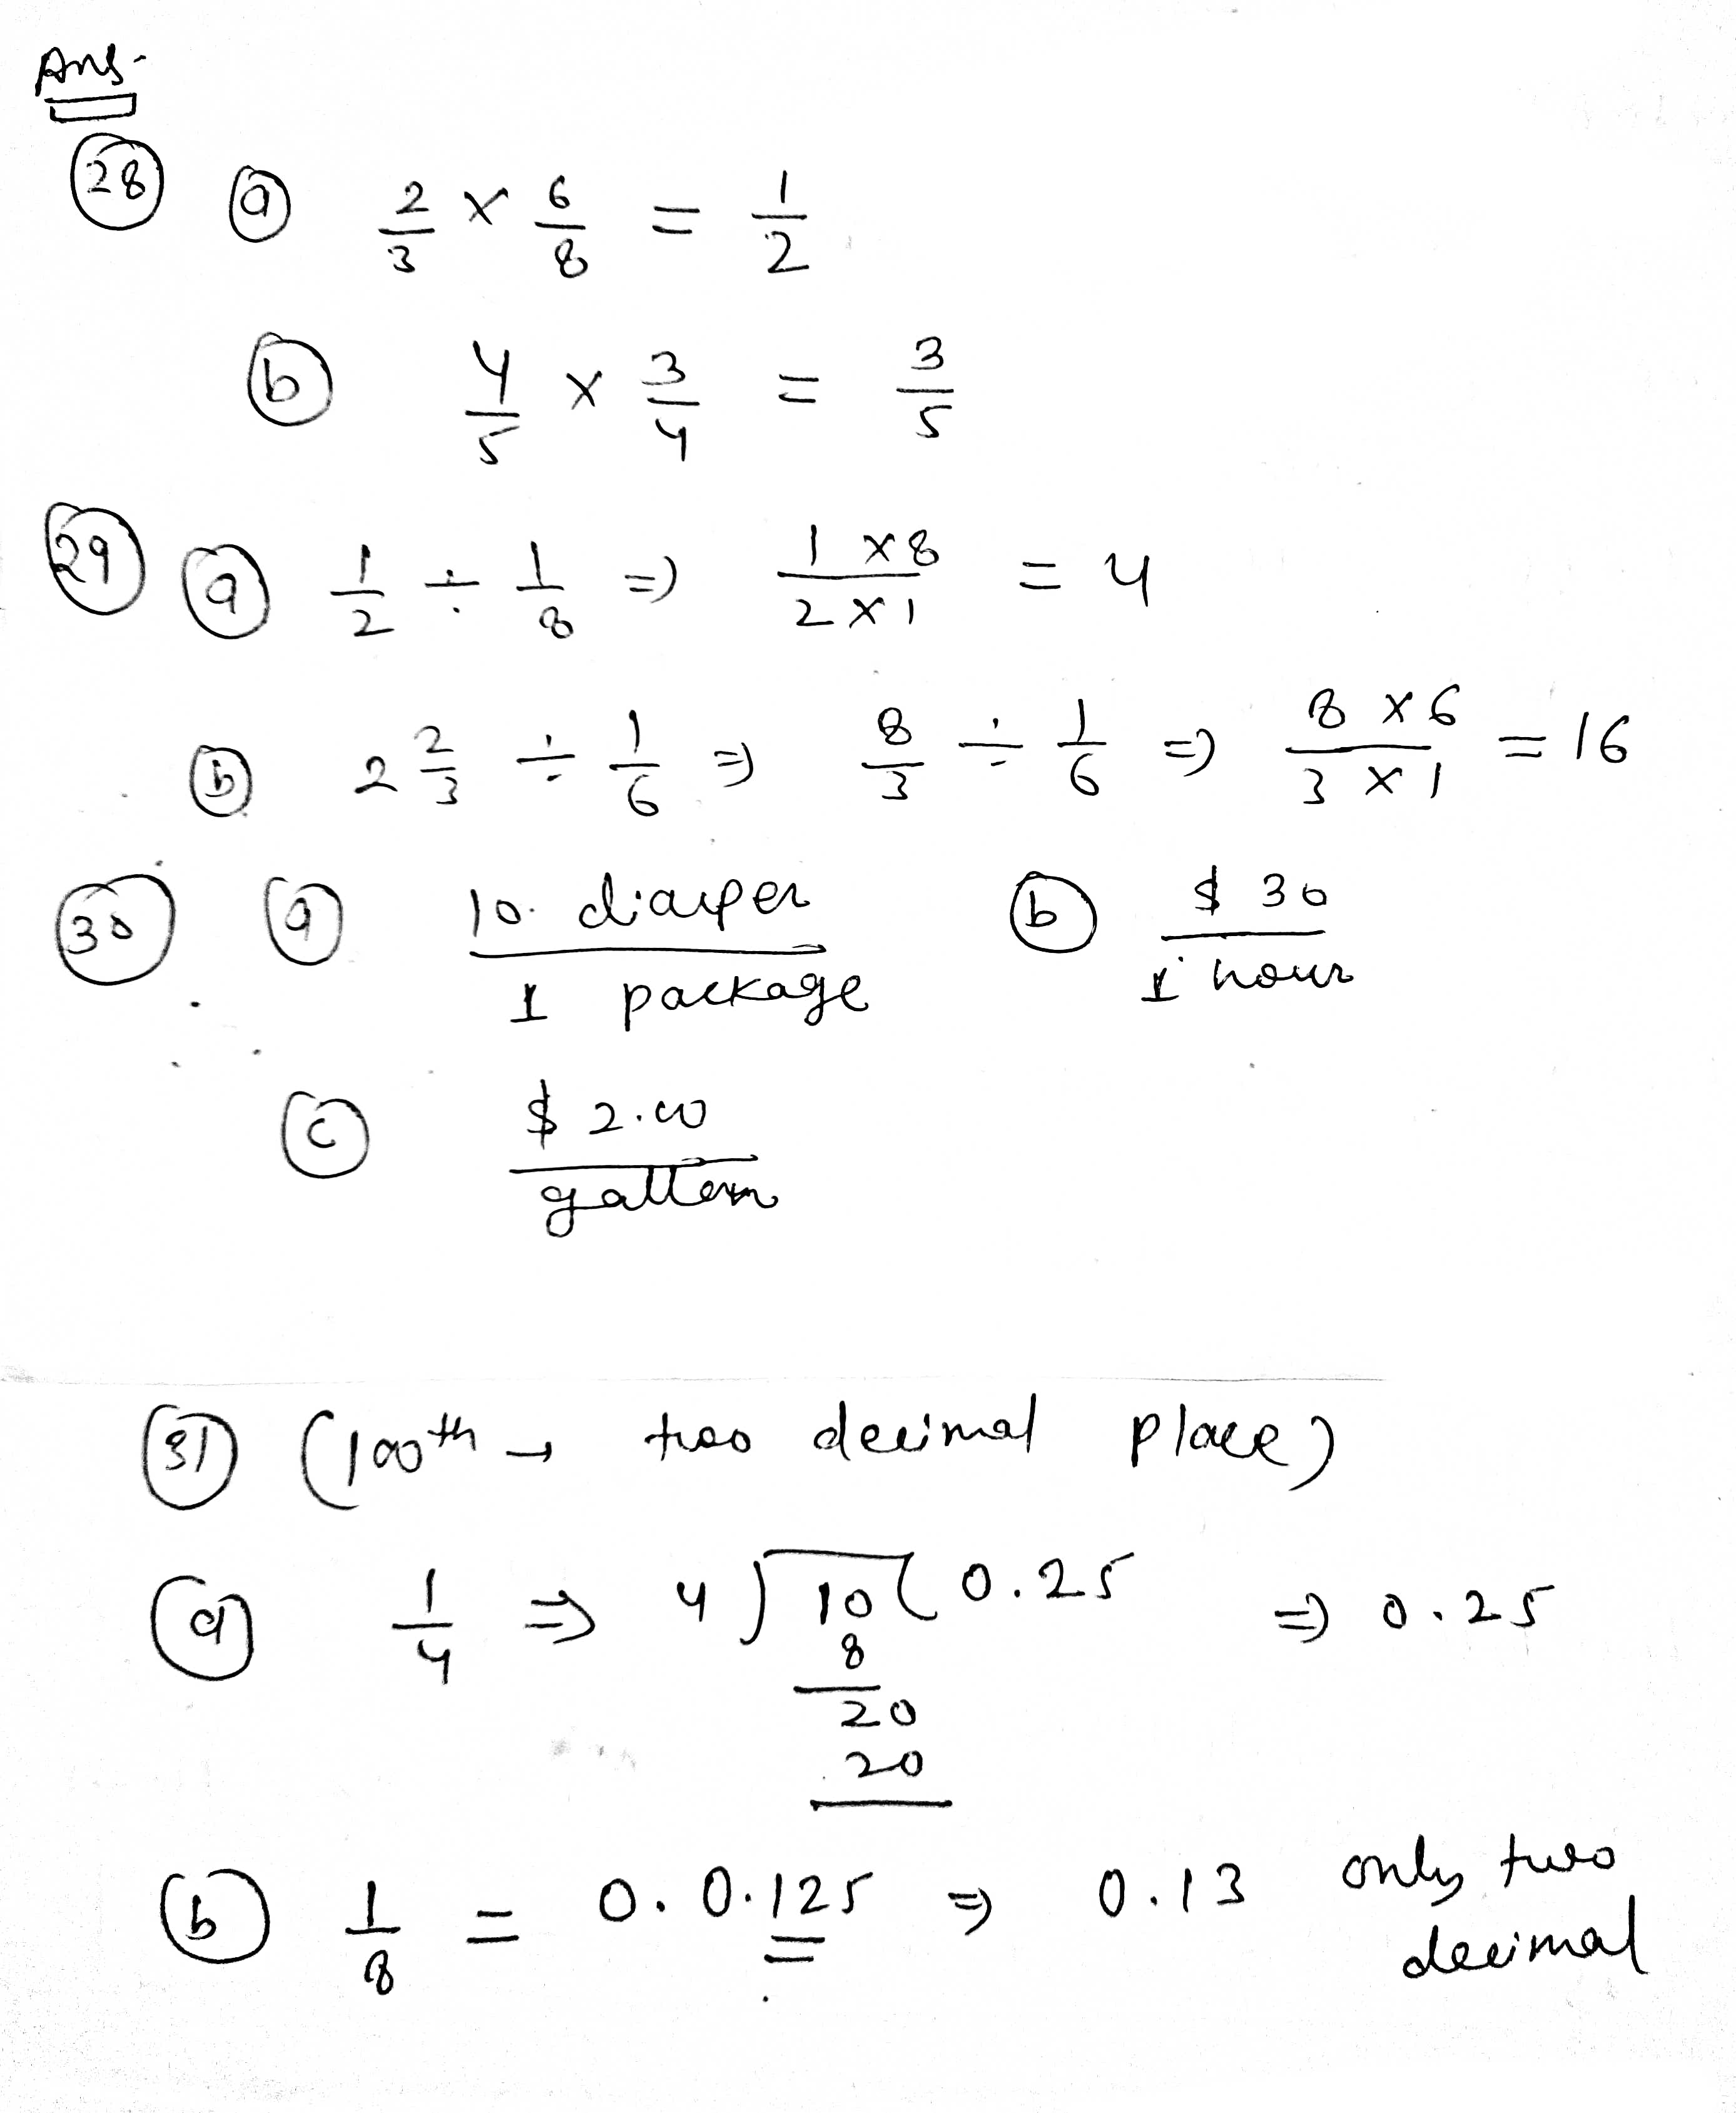 Ans-
28 a 2/3 × 6/8 = 1/2
b 4/5 × 3/4 = 3/5
29 a 1/2 ÷ 1/8 ⇒ 1 × 8 / 2 × 1 = 4
b 2 2/3 ÷ 1/6 ⇒ 8/3 ÷ 1/6 ⇒ 8 × 6 / 3 × 1 = 16
30 a 10 diaper / 1 package b $ 30 / 1 hour
c $ 2.00 /
31 (100th → two decimal place)
a 1/4 ⇒ 4 ) 10 ( 0.25 ⇒ 0.25
8
20
20
b 1/8 = 0. 0.125 ⇒ 0.13 only two
decimal